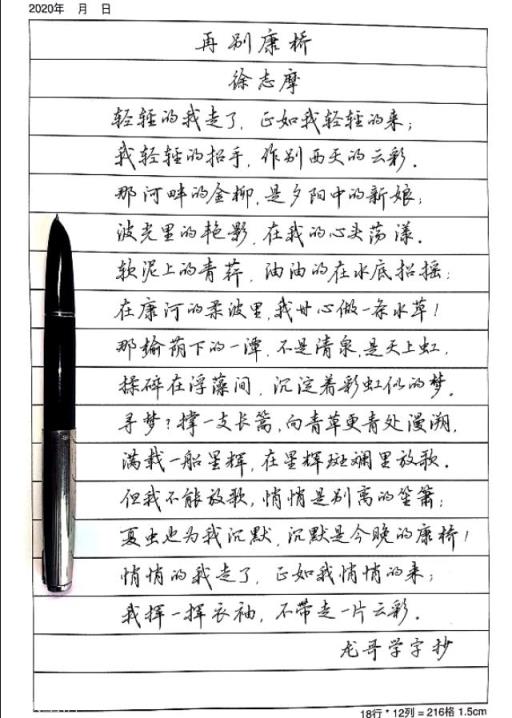 2020年 月 日
再别康桥
徐志摩
轻轻的我走了，正如我轻轻的来；
我轻轻的招手，作别西天的云彩。
那河畔的金柳，是夕阳中的新娘；
波光里的艳影，在我的心头荡漾。
软泥上的青荇，油油的在水底招摇；
在康河的柔波里，我甘心做一条水草！
那榆荫下的一潭，不是清泉，是天上虹，
揉碎在浮藻间，沉淀着彩虹似的梦。
寻梦？撑一支长篙，向青草更青处漫溯，
满载一船星辉，在星辉斑斓里放歌。
但我不能放歌，悄悄是别离的笙箫；
夏虫也为我沉默，沉默是今晚的康桥！
悄悄的我走了，正如我悄悄的来；
我挥一挥衣袖，不带走一片云彩。
龙哥学字抄
18行 * 12列 = 216格 1.5cm